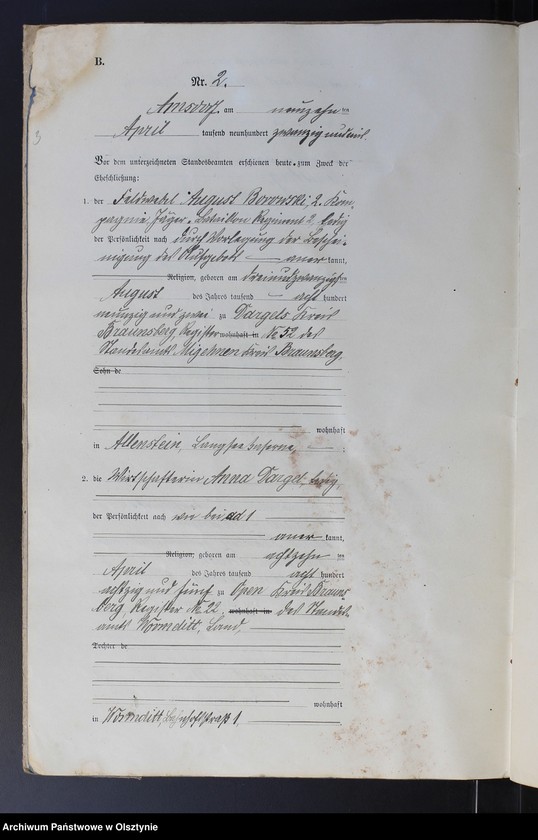 B.
Nr. 2.
Arnsdorf am neunzehnten
April tausend neunhundert zwanzig und ein.
Vor dem unterzeichneten Standesbeamten erschienen heute zum Zweck der
Eheschließung:
1. der Feldwebel August Borowski, 2. Kom-
pagnie Jäger-Bataillon Regiment 2, ledig
der Persönlichkeit nach durch Vorlegung der Beschei-
nigung des Aufgebots anerkannt,
Religion, geboren am dreiundzwanzigsten
August des Jahres tausend acht hundert
neunzig und zwei zu Dargels Kreis
Braunsberg, Register wohnhaft in No 52 des
Standesamts Migehnen Kreis Braunsberg,
Sohn de
wohnhaft
in Allenstein, Langsee Kaserne,
2. die Wirtschafterin Anna Dargel, ledig,
der Persönlichkeit nach wie bei ad 1
anerkannt,
Religion, geboren am achtzehnten
April des Jahres tausend acht hundert
achtzig und fünf zu Open Kreis Brauns-
berg Register No 22 wohnhaft in des Standes-
amts Wormditt, Land,
Tochter de
wohnhaft
in Wormditt, Bahnhofstraß 1,
3
Archiwum Państwowe w Olsztynie